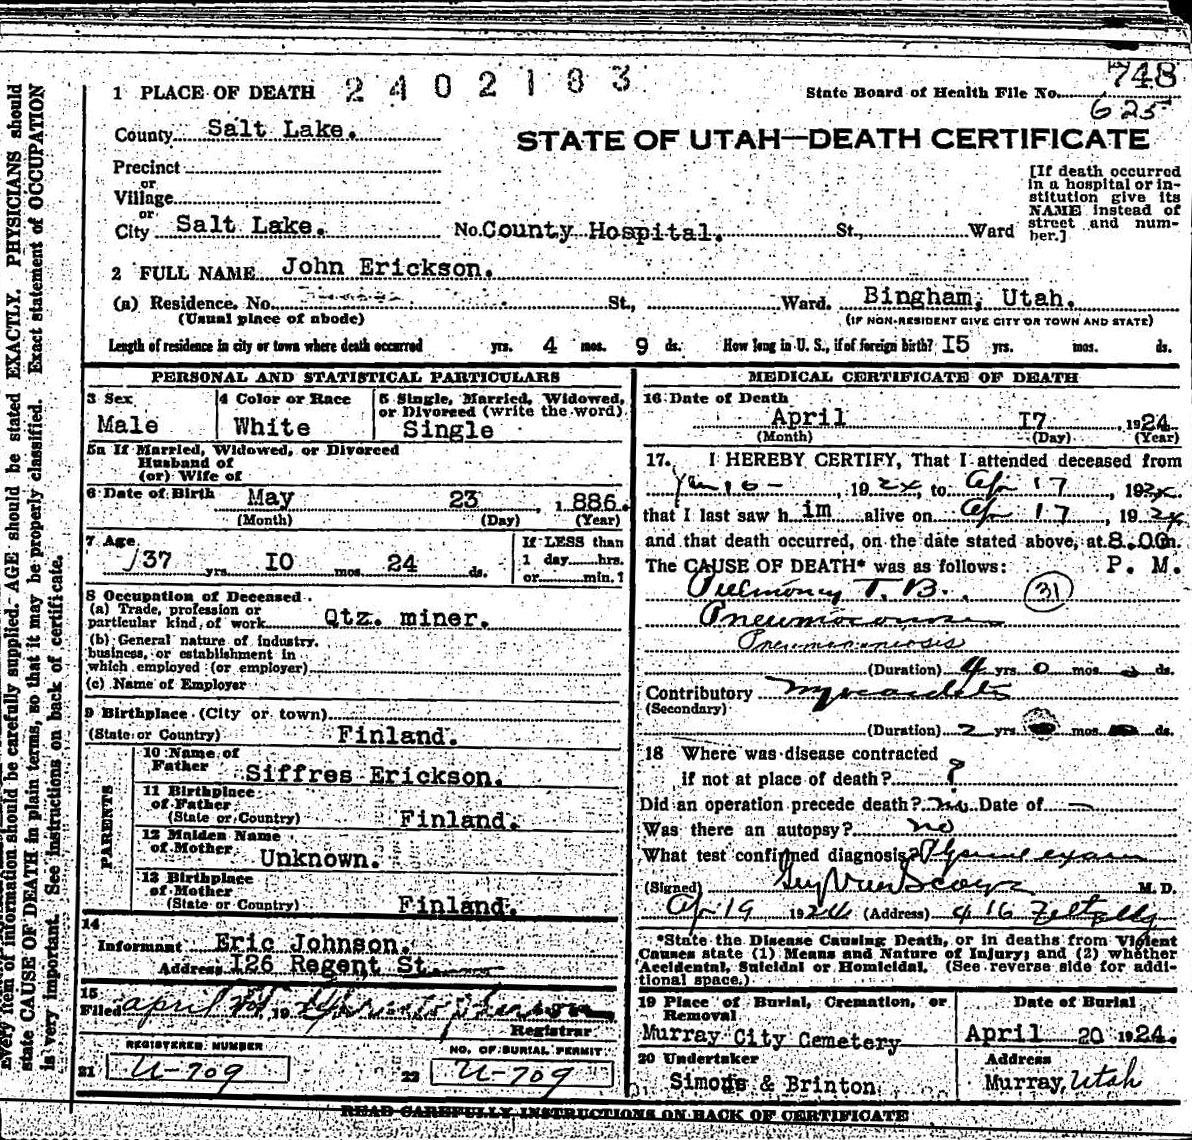 748
1 PLACE OF DEATH 2402183 State Board of Health File No.
625
County Salt Lake.
STATE OF UTAH—DEATH CERTIFICATE
Precinct
or
Village
or
City Salt Lake. No. County Hospital. St., Ward
[If death occurred
in a hospital or in-
stitution give its
NAME instead of
street and num-
ber.]
2 FULL NAME John Erickson.
(a) Residence. No. St., Ward. Bingham, Utah.
(Usual place of abode) (IF NON-RESIDENT GIVE CITY OR TOWN AND STATE)
Length of residence in city or town where death occurred yrs. 4 mos. 9 ds. How long in U. S., if of foreign birth? I5 yrs. mos. ds.
PERSONAL AND STATISTICAL PARTICULARS
3 Sex
Male
4 Color or Race
White
5 Single, Married, Widowed,
or Divorced (write the word)
Single
5a If Married, Widowed, or Divorced
Husband of
(or) Wife of
6 Date of Birth May 23 , 1886.
(Month) (Day) (Year)
7 Age
37 yrs. IO mos. 24 ds.
If LESS than
1 day hrs.
or min.?
8 Occupation of Deceased.
(a) Trade, profession or
particular kind of work Qtz. miner.
(b) General nature of industry.
business, or establishment in
which employed (or employer)
(c) Name of Employer
9 Birthplace (City or town)
(State or Country) Finland.
PARENTS
10 Name of
Father Siffres Erickson.
11 Birthplace
of Father
(State or Country) Finland.
12 Maiden Name
of Mother Unknown.
13 Birthplace
of Mother
(State or Country) Finland.
14
Informant Eric Johnson.
Address I26 Regent St.
15
Filed April 19
Registrar
REGISTERED NUMBER
21 U-709
NO. OF BURIAL PERMIT
22 U-709
MEDICAL CERTIFICATE OF DEATH
16 Date of Death
April I7 , 1924
(Month) (Day) (Year)
17. I HEREBY CERTIFY, That I attended deceased from
Jan 16 - , 1924, to Apr 17 , 1924.
that I last saw him alive on Apr 17 , 1924
and that death occurred, on the date stated above, at 8.00 m.
The CAUSE OF DEATH* was as follows: P. M.
Pulmonary T. B. 31
Pneumoconiosis
Pneumoconiosis
(Duration) 4 yrs. 0 mos. ds.
Contributory Myocarditis
(Secondary)
(Duration) 2 yrs. mos. ds.
18 Where was disease contracted
if not at place of death? ?
Did an operation precede death? no Date of —
Was there an autopsy? no
What test confirmed diagnosis? exam
(Signed) M.D.
Apr 19 1924 (Address) 416
*State the Disease Causing Death, or in deaths from Violent
Causes state (1) Means and Nature of Injury; and (2) whether
Accidental, Suicidal or Homicidal. (See reverse side for addi-
tional space.)
19 Place of Burial, Cremation, or
Removal
Murray City Cemetery
Date of Burial
April 20 1924.
20 Undertaker
Simons & Brinton
Address
Murray, Utah
READ CAREFULLY INSTRUCTIONS ON BACK OF CERTIFICATE
Every item of information should be carefully supplied. AGE should be stated EXACTLY. PHYSICIANS should
state CAUSE OF DEATH in plain terms, so that it may be properly classified. Exact statement of OCCUPATION
is very important. See instructions on back of certificate.